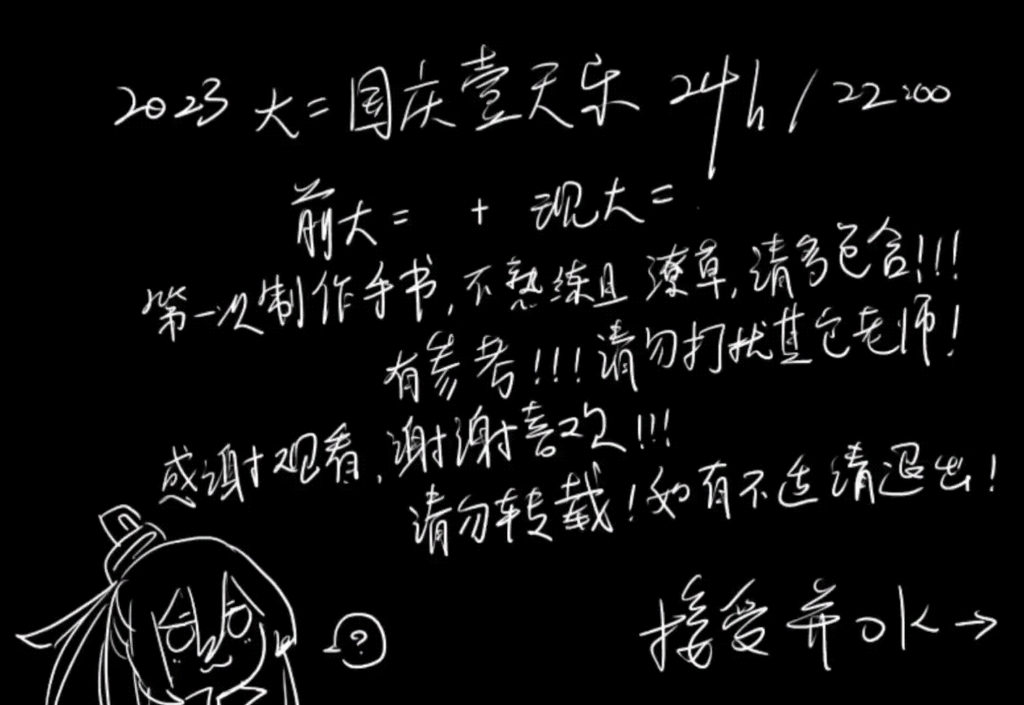 2023 大二国庆壹天乐 24h/22:00
前大二 + 现大二
第一次制作手书,不熟练且潦草,请多包含!!!
有参考!!!请勿打扰其它老师!
感谢观看,谢谢喜欢!!!
请勿转载!如有不适请退出!
?
接受并ok→